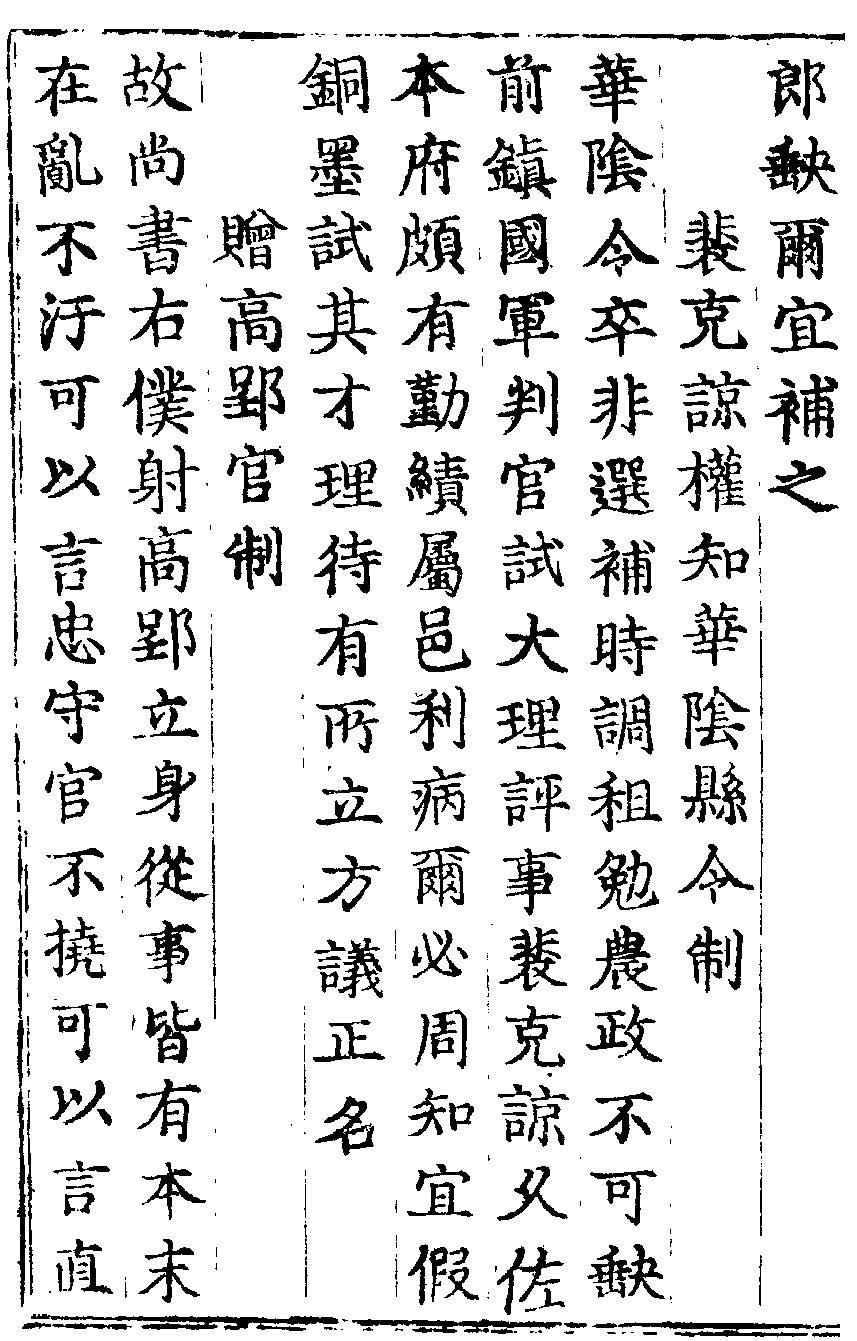 郎缺爾宜補之
裴克諒權知華陰縣令制
華陰令卒非選補時調租勉農政不可缺
前鎮國軍判官試大理評事裴克諒久佐
本府頗有勤績屬邑利病爾必周知宜假
銅墨試其才理待有所立方議正名
贈高郢官制
故尚書右僕射高郢立身從事皆有本末
在亂不汙可以言忠守官不撓可以言直